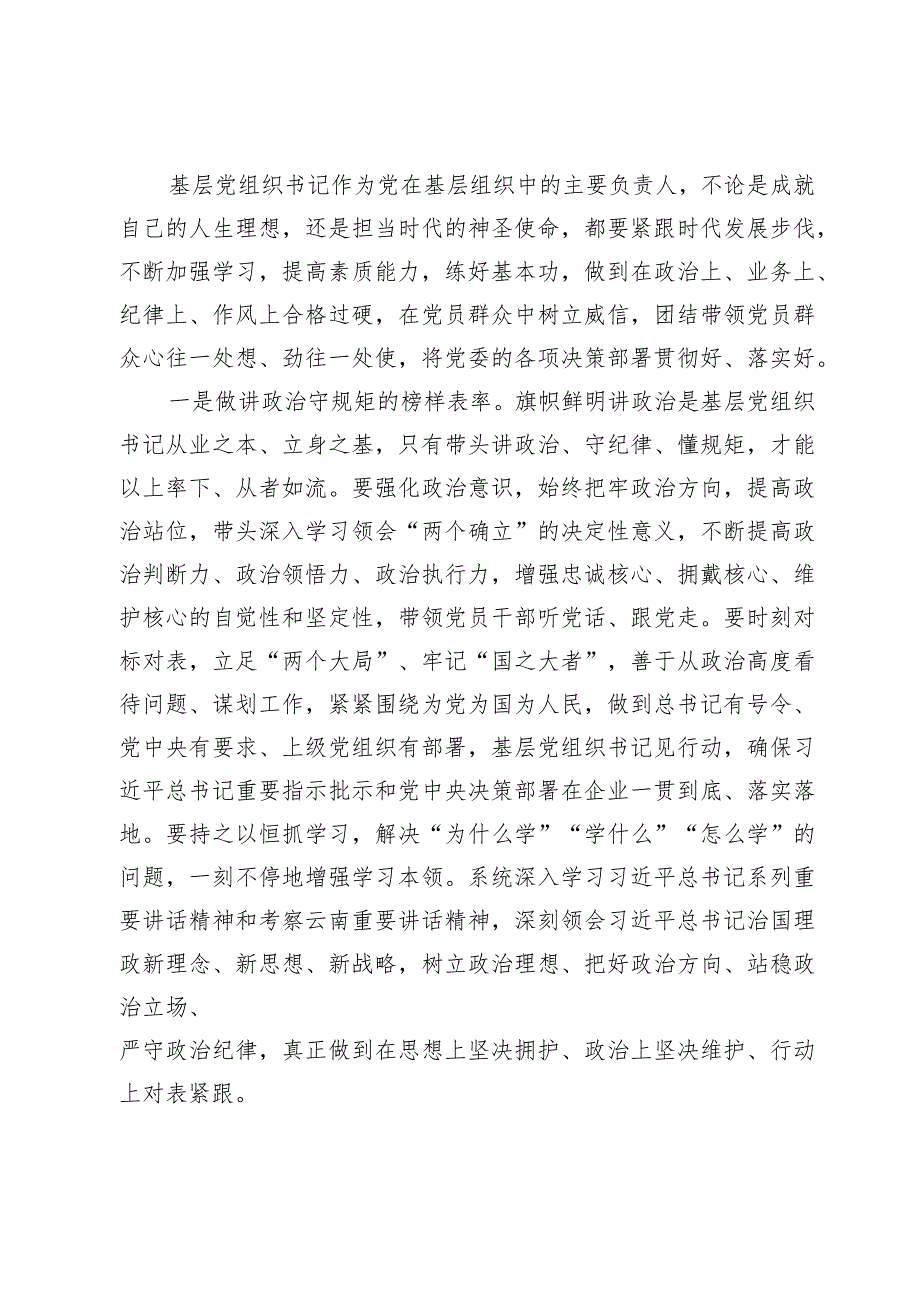 基层党组织书记作为党在基层组织中的主要负责人，不论是成就
自己的人生理想，还是担当时代的神圣使命，都要紧跟时代发展步伐，
不断加强学习，提高素质能力，练好基本功，做到在政治上、业务上、
纪律上、作风上合格过硬，在党员群众中树立威信，团结带领党员群
众心往一处想、劲往一处使，将党委的各项决策部署贯彻好、落实好。
一是做讲政治守规矩的榜样表率。旗帜鲜明讲政治是基层党组织
书记从业之本、立身之基，只有带头讲政治、守纪律、懂规矩，才能
以上率下、从者如流。要强化政治意识，始终把牢政治方向，提高政
治站位，带头深入学习领会“两个确立”的决定性意义，不断提高政
治判断力、政治领悟力、政治执行力，增强忠诚核心、拥戴核心、维
护核心的自觉性和坚定性，带领党员干部听党话、跟党走。要时刻对
标对表，立足“两个大局”、牢记“国之大者”，善于从政治高度看
待问题、谋划工作，紧紧围绕为党为国为人民，做到总书记有号令、
党中央有要求、上级党组织有部署，基层党组织书记见行动，确保习
近平总书记重要指示批示和党中央决策部署在企业一贯到底、落实落
地。要持之以恒抓学习，解决“为什么学”“学什么”“怎么学”的
问题，一刻不停地增强学习本领。系统深入学习习近平总书记系列重
要讲话精神和考察云南重要讲话精神，深刻领会习近平总书记治国理
政新理念、新思想、新战略，树立政治理想、把好政治方向、站稳政
治立场、
严守政治纪律，真正做到在思想上坚决拥护、政治上坚决维护、行动
上对表紧跟。